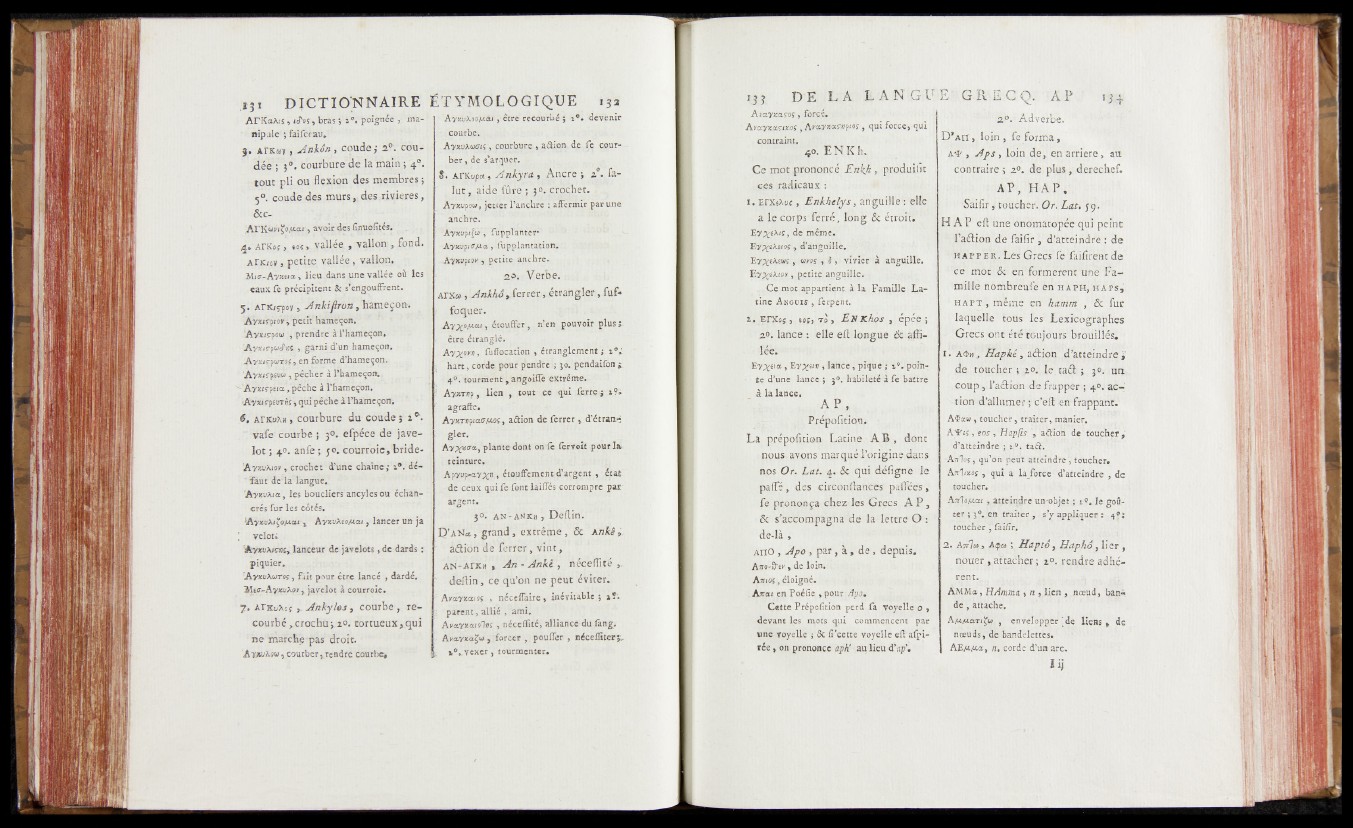 131 DICTIONNAIRE ÉTYMOLOGIQUE 132
ΑΓΚαλις, ιδος, bras ; 2°. poignée, ma-
nipule ; faisceau.
3. ΑΓΚων, Ankôn, coude ; 2°. cou-
dée ; 3°. courbure de la main ; 4°.
tout pli ou flexion des membres ;
5°. coude des murs, des rivieres,
&c.
ΑΓΚωνιζομαι, avoir des sinuosités.
4. ΑΓΚος, εος, vallée, vallon, fond.
ΑΓΚιον, petite vallée, vallon.
Μισ-Αγκεια, lieu dans une vallée où les
eaux se précipitent & s'engouffrent.
5. ΑΓΚιςρον, Ankistron, hameçon.
Αγκιςριον, petit hameçon.
Αγκιςροω, prendre à l'hameçon.
Αγκιςρωδης, garni d'un hameçon.
Αγκιςρωτις, en forme d'hameçon.
Αγκιςρευω, pêcher à l'hameçon.
Αγκιςρεια, pêche à l'hameçon.
Αγκιςρευτης, qui pêche à l'hameçon.
6. ΑΓΚυλη, courbure du coude ; 2°.
vase courbe ; 3°. espéce de jave-
lot ; 4°. anse ; 5°. courroie, bride.
Αγκυλιον, crochet d'une chaîne ; 2°. dé-
faut de la langue.
Αγκυλια, les boucliers ancyles ou échan-
crés sur les côtés.
Αγκυλιζομαι, Αγκυλεομαι, lancer un ja
velot.
Αγκυλιςης, lanceur de javelots, de dards ;
piquier.
Αγκυλωτος, fait pour être lancé, dardé.
Μεσ-Αγκυλον, javelot à courroie.
7. ΑΓΚυλος, Ankylos, courbe, re-
courbé, crochu ; 2°. tortueux, qui
ne marche pas droit.
Αγκυλοω, courber, rendre courbe.
Αγκυλεομαι, être recourbé ; 2°. devenir
courbe.
Αγκυλωσις, courbure, action de se cour-
ber, de s'arquer.
8. ΑΓΚυρα, Ankyra, Ancre ; 2°. sa-
lut, aide sûre ; 3°. crochet.
Αγκυροω, jetter l'anchre : affermir par une
anchre.
Αγκυριζω, supplanter.
Αγκυρισμα, supplantation.
Αγκυριον, petite anchre.
2°. Verbe.
ΑΓΧω, Ankhô, serrer, étrangler, suf-
foquer.
Αγχομαι, étouffer, n'en pouvoir plus ;
être étranglé.
Αγχονη, suffocation, étranglement ; 2°.
hart, corde pour pendre ; 3°. pendaison ;
4°. tourment, angoisse extrême.
Αγκτηρ, lien, tout ce qui serre ; 2°.
agraffe.
Αγκτηριασμος, action de serrer, d'étran-
gler.
Αγχουσα, plante dont on se servoit pour la
teinture.
Αργυρ-αγχη, étouffement d'argent, état
de ceux qui se sont laissés corrompre par
argent.
3°. AN-ANKη, Destin.
D'ΑΝα, grand, extrême, & Ankê,
action de serrer, vint,
ΑΝ-ΑΓΚη, An-Ankê, nécessité,
destin, ce qu'on ne peut éviter.
Αναγκαιος, nécessaire, inévitable ; 2°.
parent, allié, ami.
Αναγκαιοτης, nécessité, alliance du sang.
Αναγκαζω, forcer, pousser, nécessiter ;
2°. vexer, tourmenter.
133 DE LA LANGUE GRECQ. AP 134
Αναγκαςος, forcé.
Αναγκαςικος, Αναγκαςηριος, qui force, qui
contraint.
4°. ENKh.
Ce mot prononcé Enkh, produisit
ces radicaux :
1. ΕΓΧελυς, Enkhelys, anguille : elle
a le corps serré, long & étroit.
Εγχελις, de même.
Εγχελειος, d'anguille.
Εγχελεων, ωνος, ὁ, vivier à anguille.
Εγχελιον, petite anguille.
Ce mot appartient à la Famille La-
tine Anguis, serpent.
2. ΕΓΧος, εος, τὸ, ENKhos, épée ;
2°. lance : elle est longue & affi-
lée.
Εγχεια, Εγχειη, lance, pique ; 2°. poin-
te d'une lance ; 3°. habileté à se battre
à la lance.
AP,
Préposition.
La préposition Latine AB, dont
nous avons marqué l'origine dans
nos Or. Lat. 4. & qui désigne le
passé, des circonstances passées,
se prononça chez les Grecs AP,
& s'accompagna de la lettre O :
de-là,
ΑΠΟ, Apo, par, à, de, depuis.
Απο-θεν, de loin.
Απιος, éloigné.
Απαι en Poésie, pour Apo.
Cette Préposition perd sa voyelle o,
devant les mots qui commencent par
une voyelle ; & si cette voyelle est aspi-
rée, on prononce aph' au lieu d'ap'.
2°. Adverbe.
D'ΑΠ, loin, se forma,
ΑΨ, Aps, loin de, en arriere, au
contraire ; 2°. de plus, derechef.
AP, HAP,
Saisir, toucher. Or. Lat. 59.
HAP est une onomatopée qui peint
l'action de saisir, d'atteindre : de
happer. Les Grecs se saisirent de
ce mot & en formerent une Fa-
mille nombreuse en haph, haps,
hapt, même en hamm, & sur
laquelle tous les Lexicographes
Grecs ont été toujours brouillés.
1. ΑΦη, Haphé, action d'atteindre,
de toucher ; 2°. le tact ; 3°. un
coup, l'action de frapper ; 4°. ac-
tion d'allumer ; c'est en frappant.
Αφαω, toucher, traiter, manier.
Αψις, εος, Hapsis, action de toucher,
d'atteindre ; 2°. tact.
Απτος, qu'on peut atteindre, toucher.
Απτικος, qui a la force d'atteindre, de
toucher.
Απτομαι, atteindre un objet ; 2°. le goû-
ter ; 3°. en traiter, s'y appliquer : 4°.
toucher, saisir.
2. Απτω, Αφω ; Haptó, Haphó, lier,
nouer, attacher ; 2°. rendre adhé-
rent.
ΑΜΜα, HAmma, n, lien, nœud, ban-
de, attache.
Αμματιζω, envelopper de liens, de
nœuds, de bandelettes.
ΑΕμμα, n. corde d'un arc.
I ij